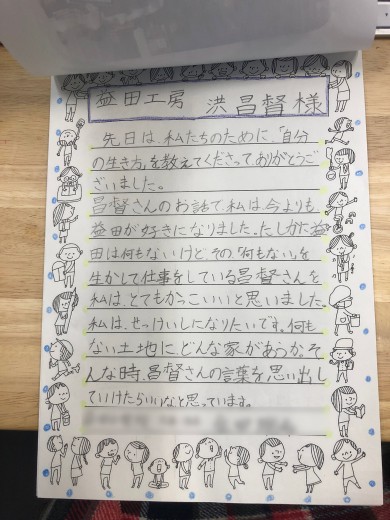 益田工房 洪昌督様
先日は、私たちのために、「自分
の生き方」を教えてくださって、ありがとうご
ざいました。
昌督さんのお話で、私は今よりも
益田が好きになりました。たしかに益
田は何もないけど、その「何もない」を
生かして仕事をしている昌督さんを
私は、とてもかっこいいと思いました。
私は、せっけいしになりたいです。何も
ない土地に、どんな家があうか。そ
んな時、昌督さんの言葉を思い出し
ていけたらいいなと思っています。